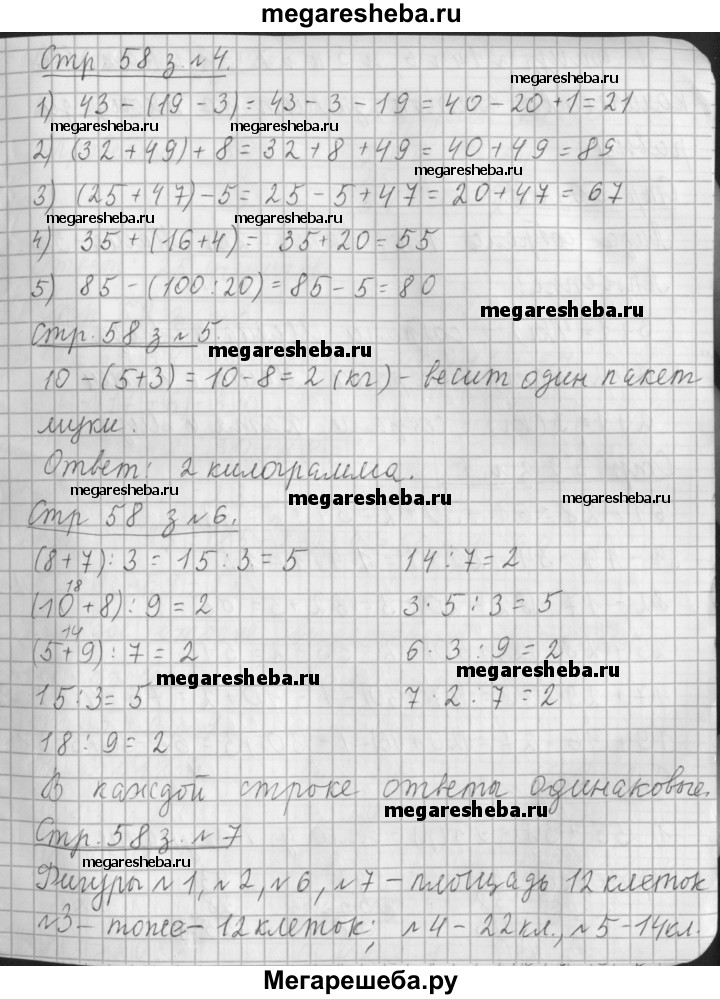 megaresheba.ru
Стр 58 з. №4.
megaresheba.ru
1) 43 - (19 - 3) = 43 - 3 - 19 = 40 - 20 + 1 = 21
megaresheba.ru megaresheba.ru
2) (32 + 49) + 8 = 32 + 8 + 49 = 40 + 49 = 89
megaresheba.ru
3) (25 + 47) - 5 = 25 - 5 + 47 = 20 + 47 = 67
megaresheba.ru megaresheba.ru
4) 35 + (16 + 4) = 35 + 20 = 55
5) 85 - (100 : 20) = 85 - 5 = 80
megaresheba.ru
Стр. 58 з №5.
megaresheba.ru
10 - (5+3) = 10 - 8 = 2 (кг) - весит один пакет
муки.
Ответ: 2 килограмма.
megaresheba.ru megaresheba.ru megaresheba.ru
Стр 58 з №6.
(8 + 7) : 3 = 15 : 3 = 5 14 : 7 = 2
18
(10 + 8) : 9 = 2 3 · 5 : 3 = 5
14
(5 + 9) : 7 = 2 6 · 3 : 9 = 2
megaresheba.ru megaresheba.ru
15 : 3 = 5 7 · 2 : 7 = 2
18 : 9 = 2
В каждой строке ответы одинаковые.
megaresheba.ru
Стр. 58 з. №7
megaresheba.ru
Фигуры №1, №2, №6, №7 - площадь 12 клеток
№3 - тоже - 12 клеток; №4 - 22 кл., №5 - 14 кл.
megaresheba.ru megaresheba.ru
Мегарешеба.ру